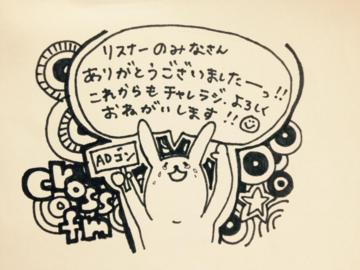 リスナーのみなさん
ありがとうございましたーっ!!
これからもチャレラジ、よろしく
おねがいします!!
ADゴン
cross
fm